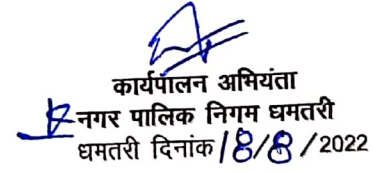 कार्यपालन अभियंता
नगर पालिक निगम धमतरी
धमतरी दिनांक 18/8/2022